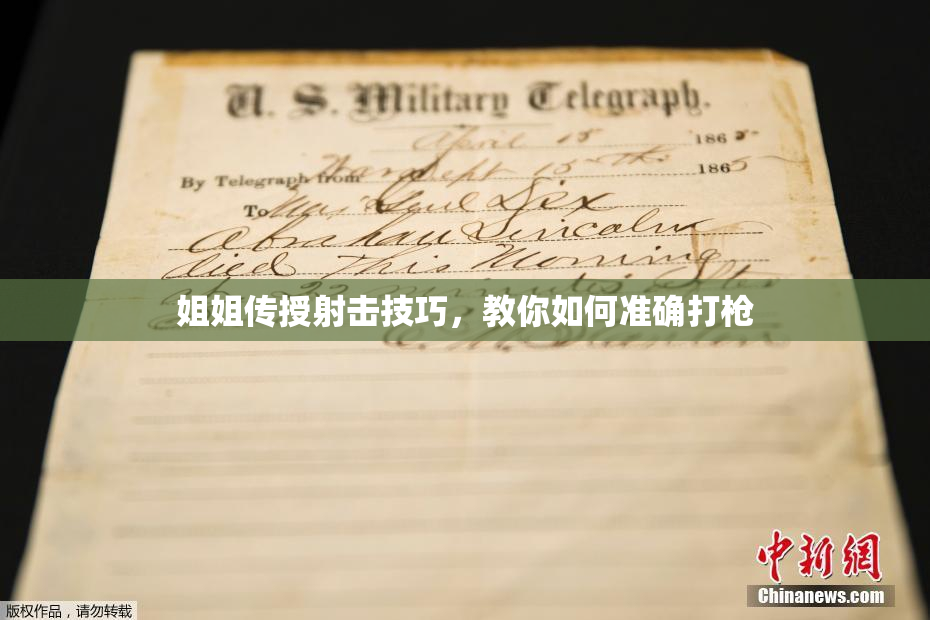 U. S. Military Telegraph.
April 15 1865
By Telegraph from War Dept 15th 1865
To Maj Genl Dix
Abraham Lincoln
died This Morning
at 22 minutes after
姐姐传授射击技巧，教你如何准确打枪
E. M. Stanton
中新网
Chinanews.com
版权作品，请勿转载